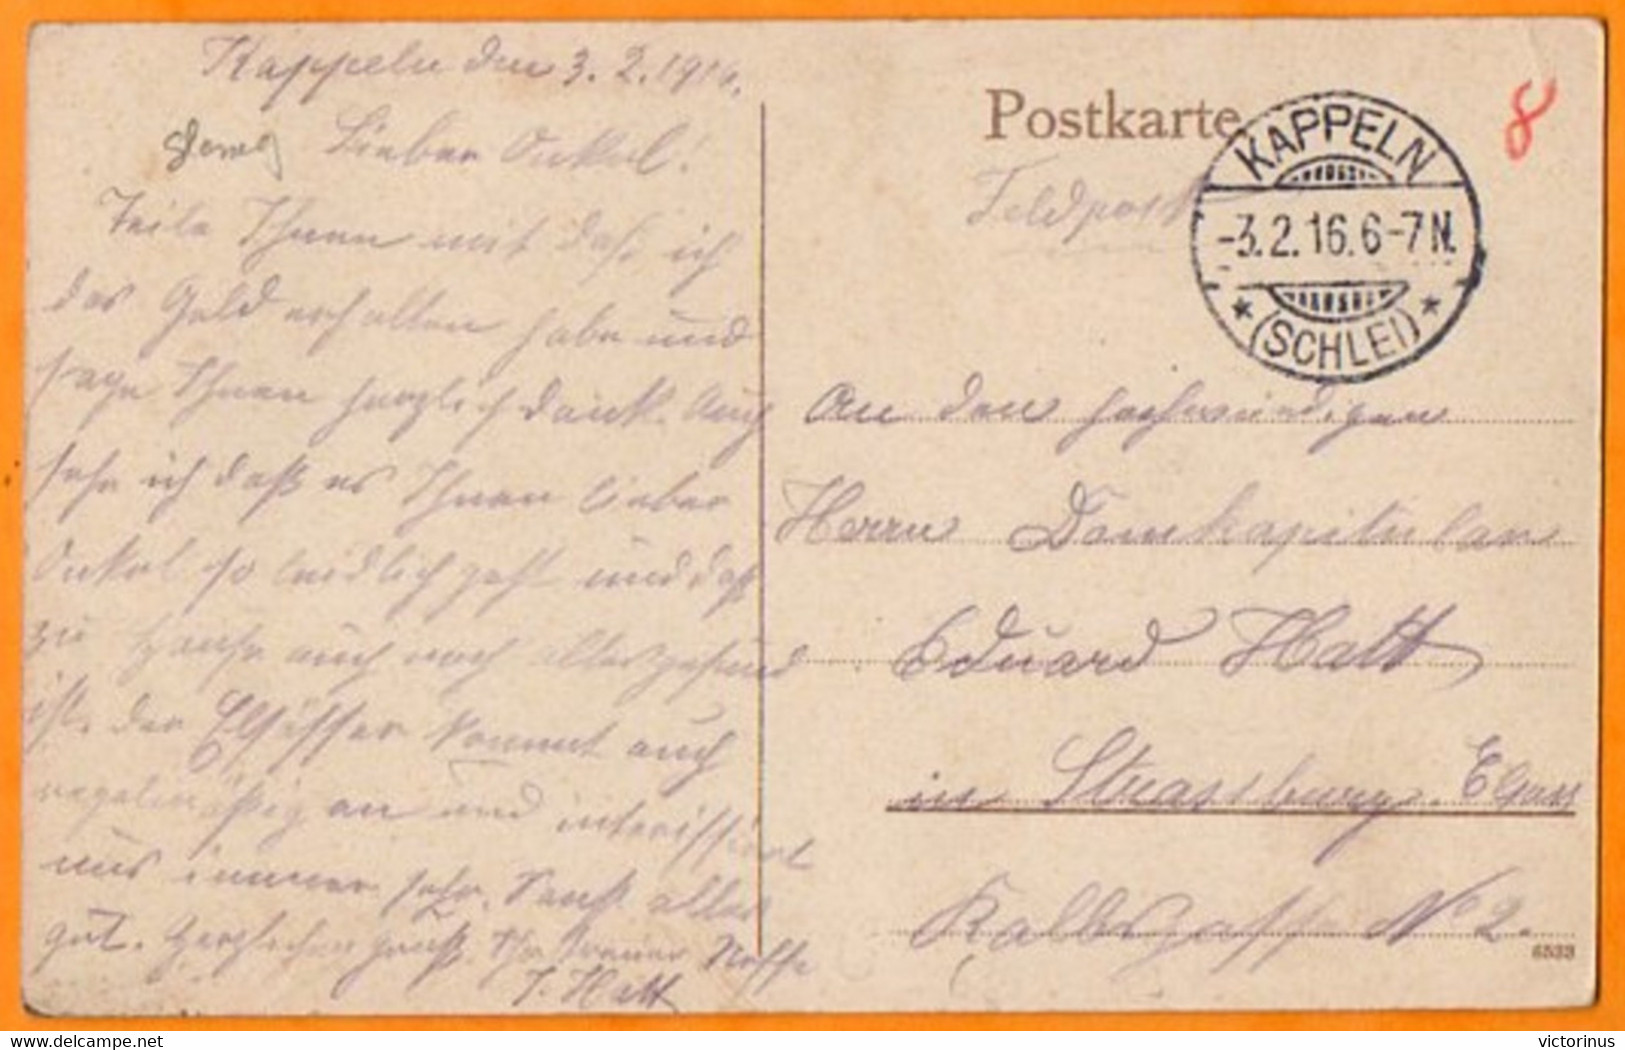 Kappeln den 3.2.1916.
Lieber Onkel!
Teile Ihnen mit daß ich
das Geld erhalten habe und
sage Ihnen herzlich Dank. Auch
sehe ich daß es Ihnen lieber
Onkel so leidlich geht und daß
zu Hause auch noch alles gesund
ist. Der Elsässer kommt auch
regelmäßig an und interissiert
uns immer sehr. Sonst alles
gut. Herzlichen Gruß Ihr treuer Neffe
J. Hatt
Postkarte
Feldpost
KAPPELN
-3.2.16.6-7N.
* (SCHLEI) *
8
An den hochwürdigen
Herrn Domkapitular
Eduard Hatt
in Strassburg. Elsass
Kalbsgasse No 2.
6533
victorinus